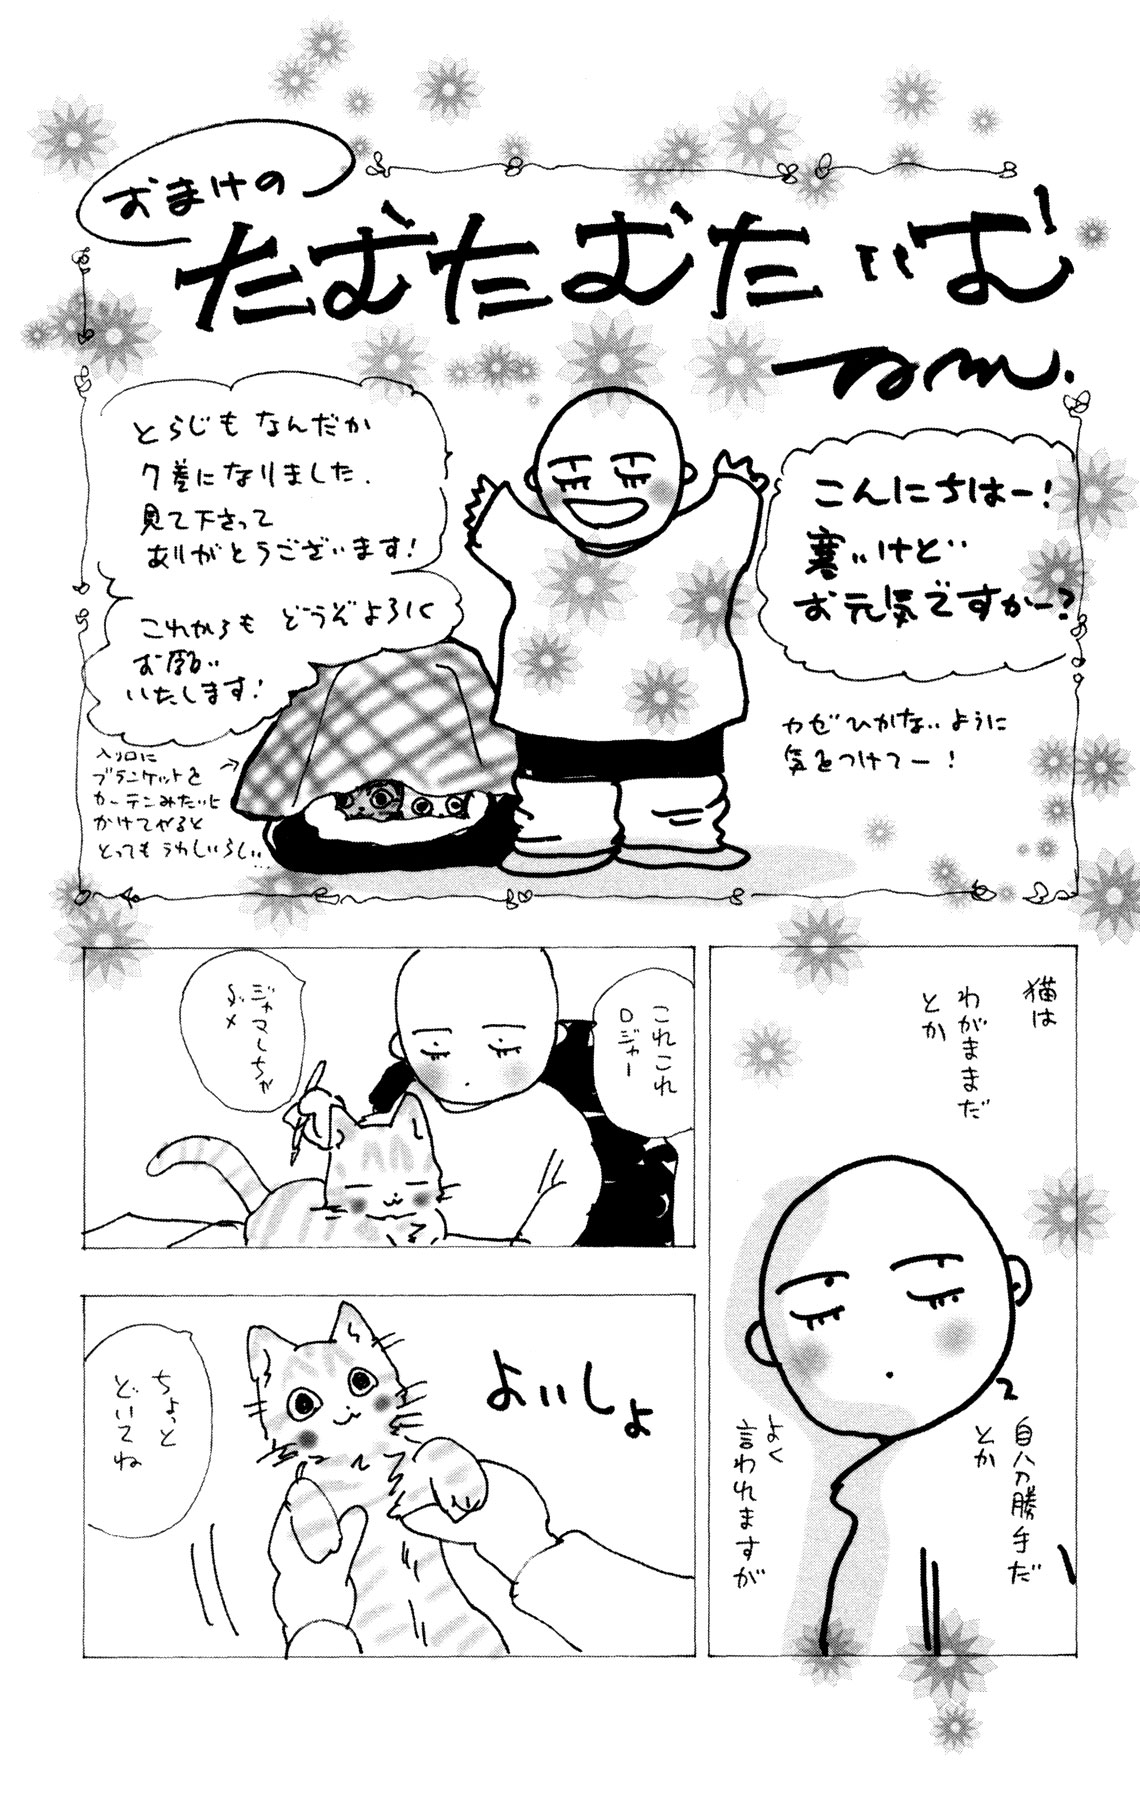 おまけの
たむたむたいむ
こんにちはー!
寒いけど
お元気ですかー?
カゼひかないように
気をつけてー!
とらじも なんだか
7巻になりました.
見て下さって
ありがとうございます!
これからも どうぞよろしく
お願い
いたします!
入り口に
ブランケットを
カーテンみたいに
かけてやると
とってもうれしいらしい…
猫は
わがままだ
とか
自分勝手だ
とか
よく
言われますが
これこれ
ロジャー
ジャマしちゃ
ダメ
よいしょ
ちょっと
どいてね